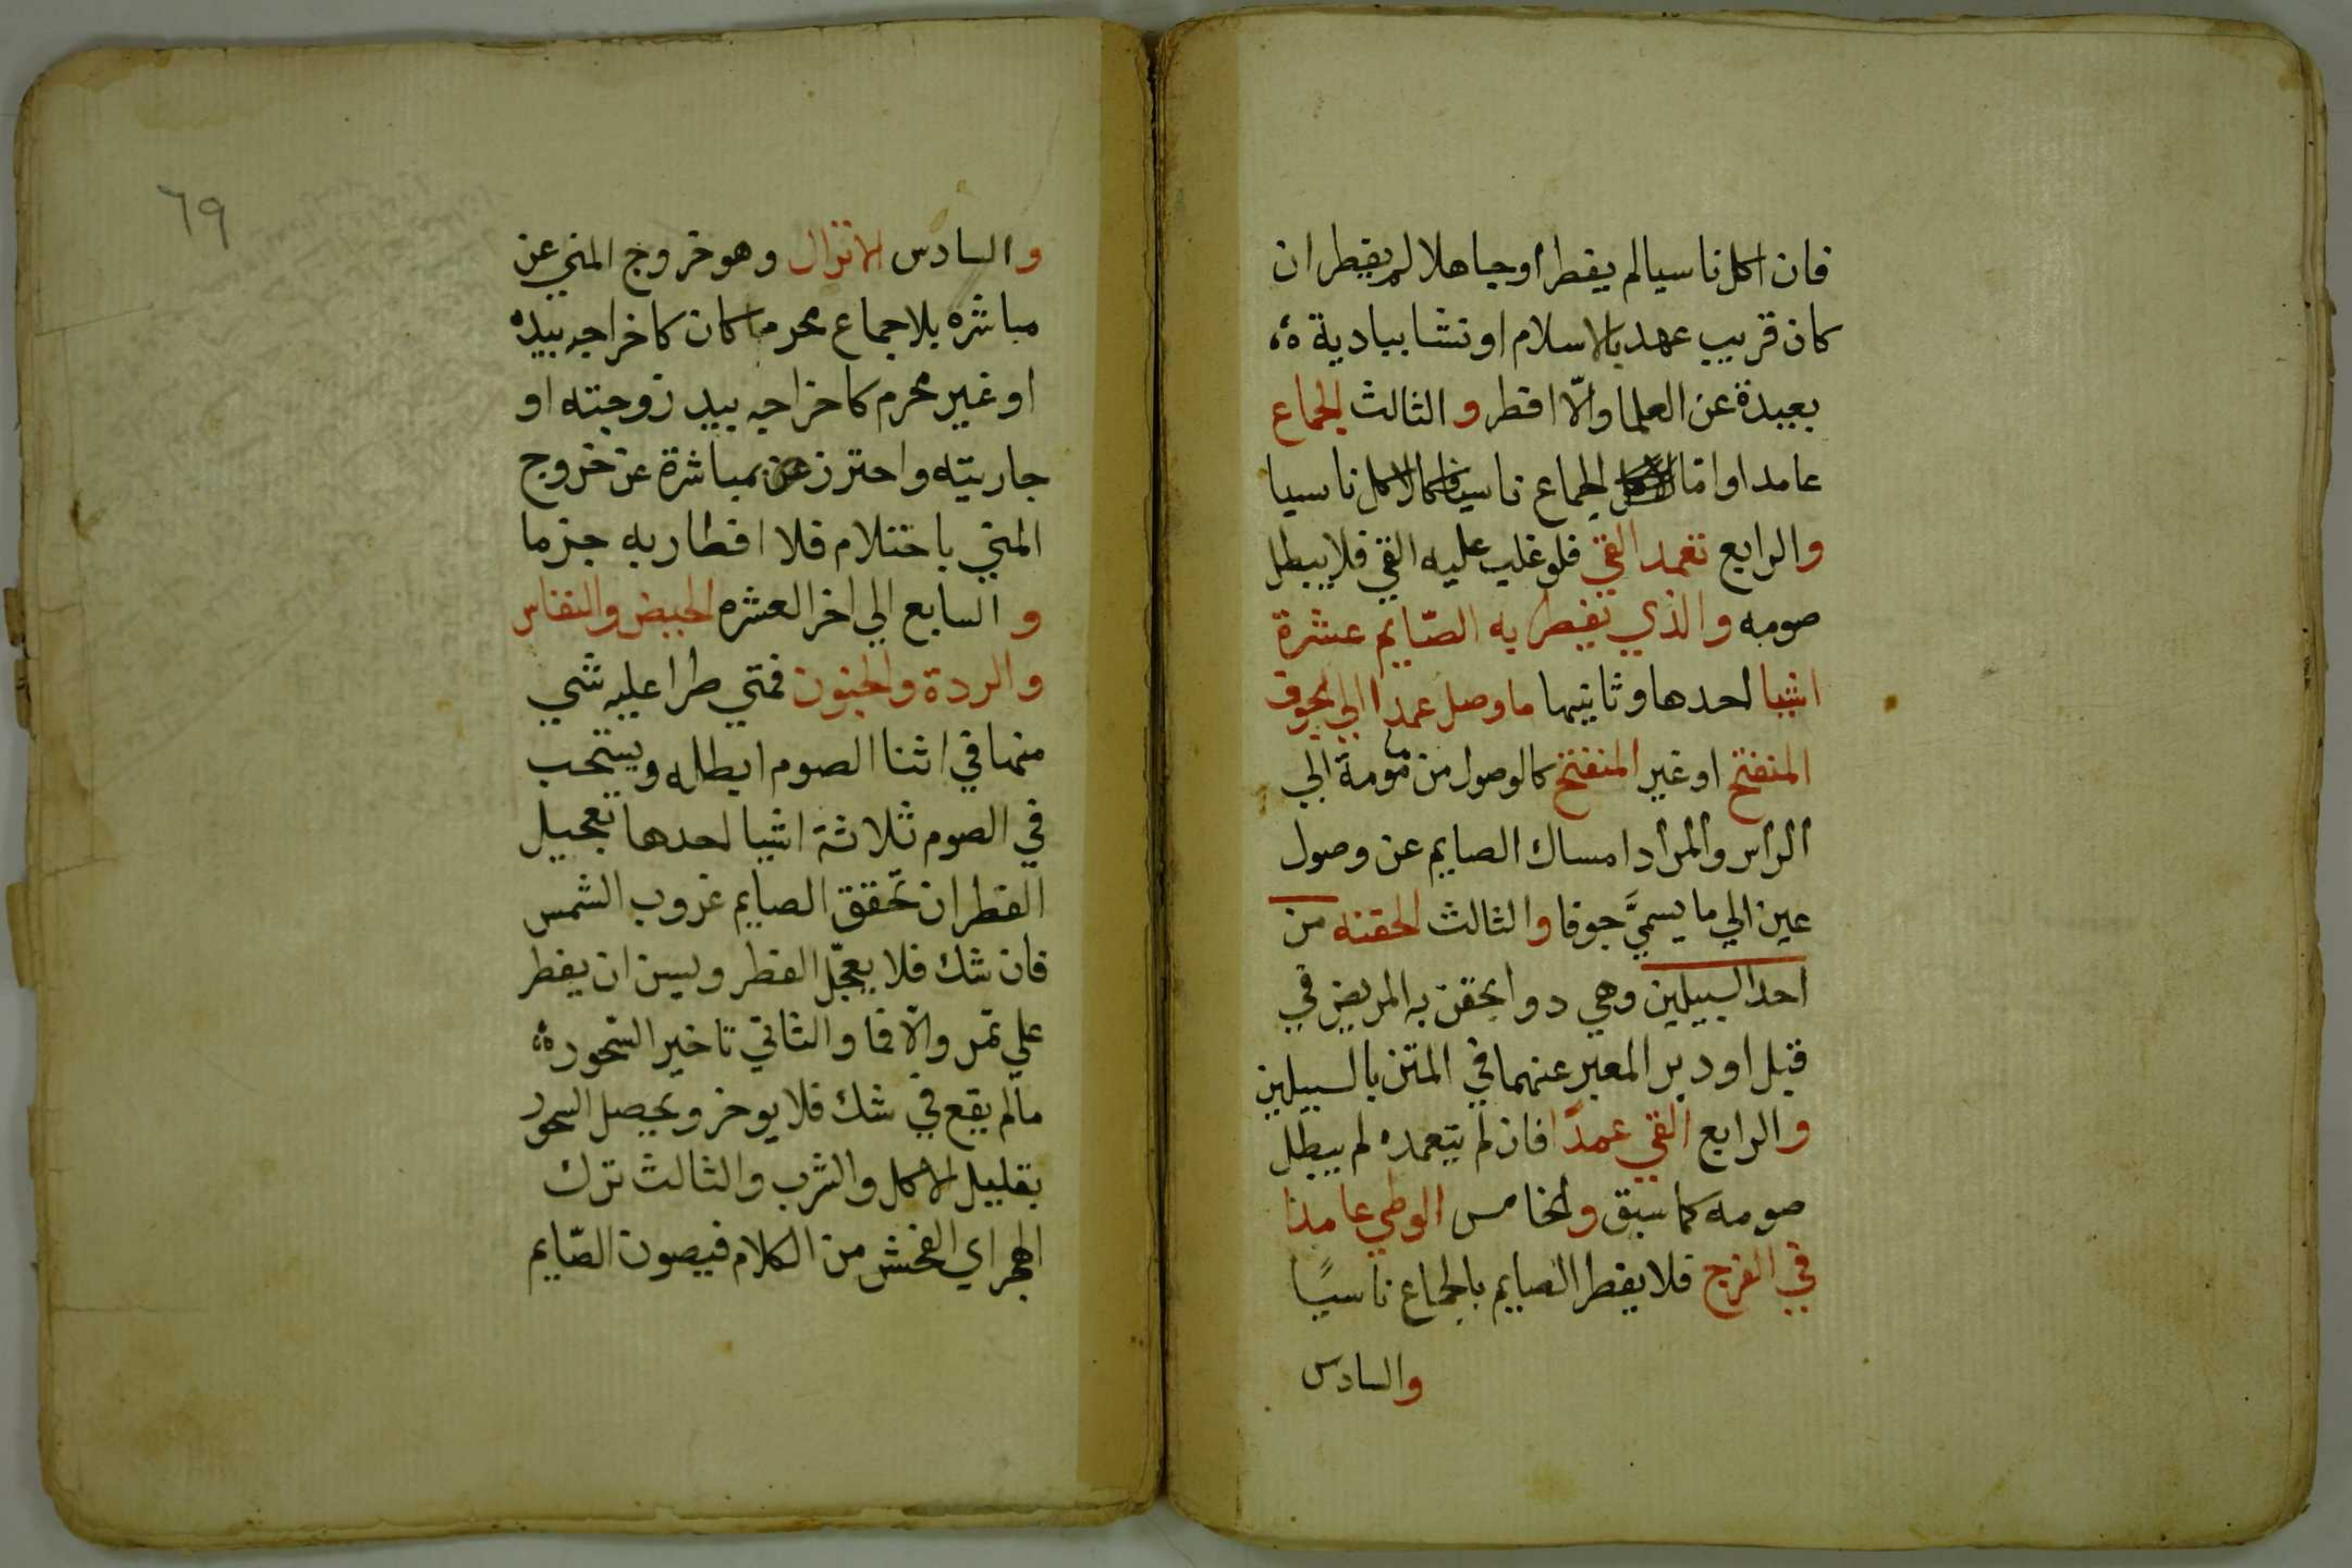 فان اكل ناسيا لم يفطر او جاهلا لم يفطر ان
كان قريب عهد بالاسلام او نشا ببادية
بعيدة عن العلما والّا افطر والثالث الجماع
عامدا واما الجماع ناسيا فكالاكل ناسيا
والرابع تعمد القي فلو غلب عليه القي فلا يبطل
صومه والذي يفطر به الصّايم عشرة
اشيا احدها وثانيها ما وصل عمدا الي الجوف
المنفتح او غير المنفتح كالوصول من مامومة الي
الراس والمراد امساك الصايم عن وصول
عين الي ما يسمَّي جوفا والثالث الحقنه من
احد السبيلين وهي دوا يحقن به المريض في
قبل او دبر المعبر عنهما في المتن بالسبيلين
والرابع القي عمدًا فان لم يتعمده لم يبطل
صومه كما سبق والخامس الوطي عامدا
في الفرج فلا يفطر الصايم بالجماع ناسيًا
والسادس
٦٩
والسادس الانزال وهو خروج المني عن
مباشره بلا جماع محرما كان كاخراجه بيده
او غير محرم كاخراجه بيد زوجته او
جاريته واحترز بمباشرة عن خروج
المني باحتلام فلا افطار به جزما
والسابع الي اخر العشره الحيض والنفاس
والردة والجنون فمتي طرا عليه شي
منها في اثنا الصوم ابطله ويستحب
في الصوم ثلاثة اشيا احدها تعجيل
الفطر ان تحقق الصايم غروب الشمس
فان شك فلا يعجّل الفطر ويسن ان يفطر
علي تمر والّا فما والثاني تاخير السّحور
ما لم يقع في شك فلا يوخر ويحصل السحور
بقليل الاكل والشرب والثالث ترك
الهجر اي الفحش من الكلام فيصون الصّايم